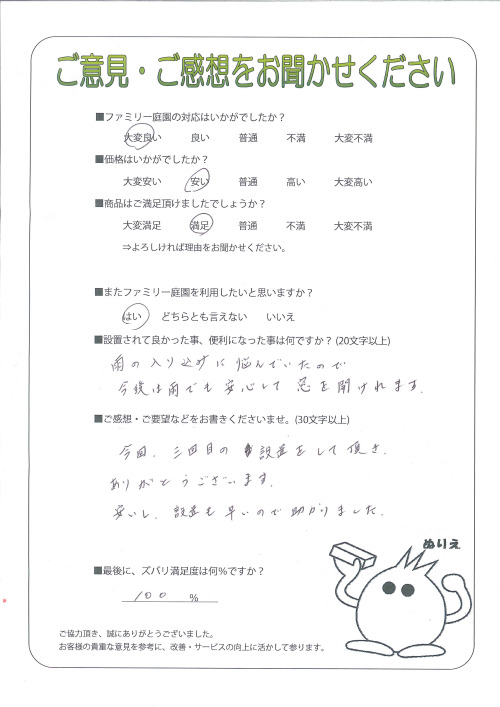 ご意見・ご感想をお聞かせください
■ファミリー庭園の対応はいかがでしたか？
大変良い 良い 普通 不満 大変不満
■価格はいかがでしたか？
大変安い 安い 普通 高い 大変高い
■商品はご満足頂けましたでしょうか？
大変満足 満足 普通 不満 大変不満
⇒よろしければ理由をお聞かせください。
■またファミリー庭園を利用したいと思いますか？
はい どちらとも言えない いいえ
■設置されて良かった事、便利になった事は何ですか？(20文字以上)
雨の入り込みに悩んでいたので
今後は雨でも安心して窓を開けれます.
■ご感想・ご要望などをお書きくださいませ。(30文字以上)
今回、三回目の設置をして頂き、
ありがとうございます.
安いし、設置も早いので助かりました.
ぬりえ
■最後に、ズバリ満足度は何％ですか？
100 %
ご協力頂き、誠にありがとうございました。
お客様の貴重な意見を参考に、改善・サービスの向上に活かして参ります。